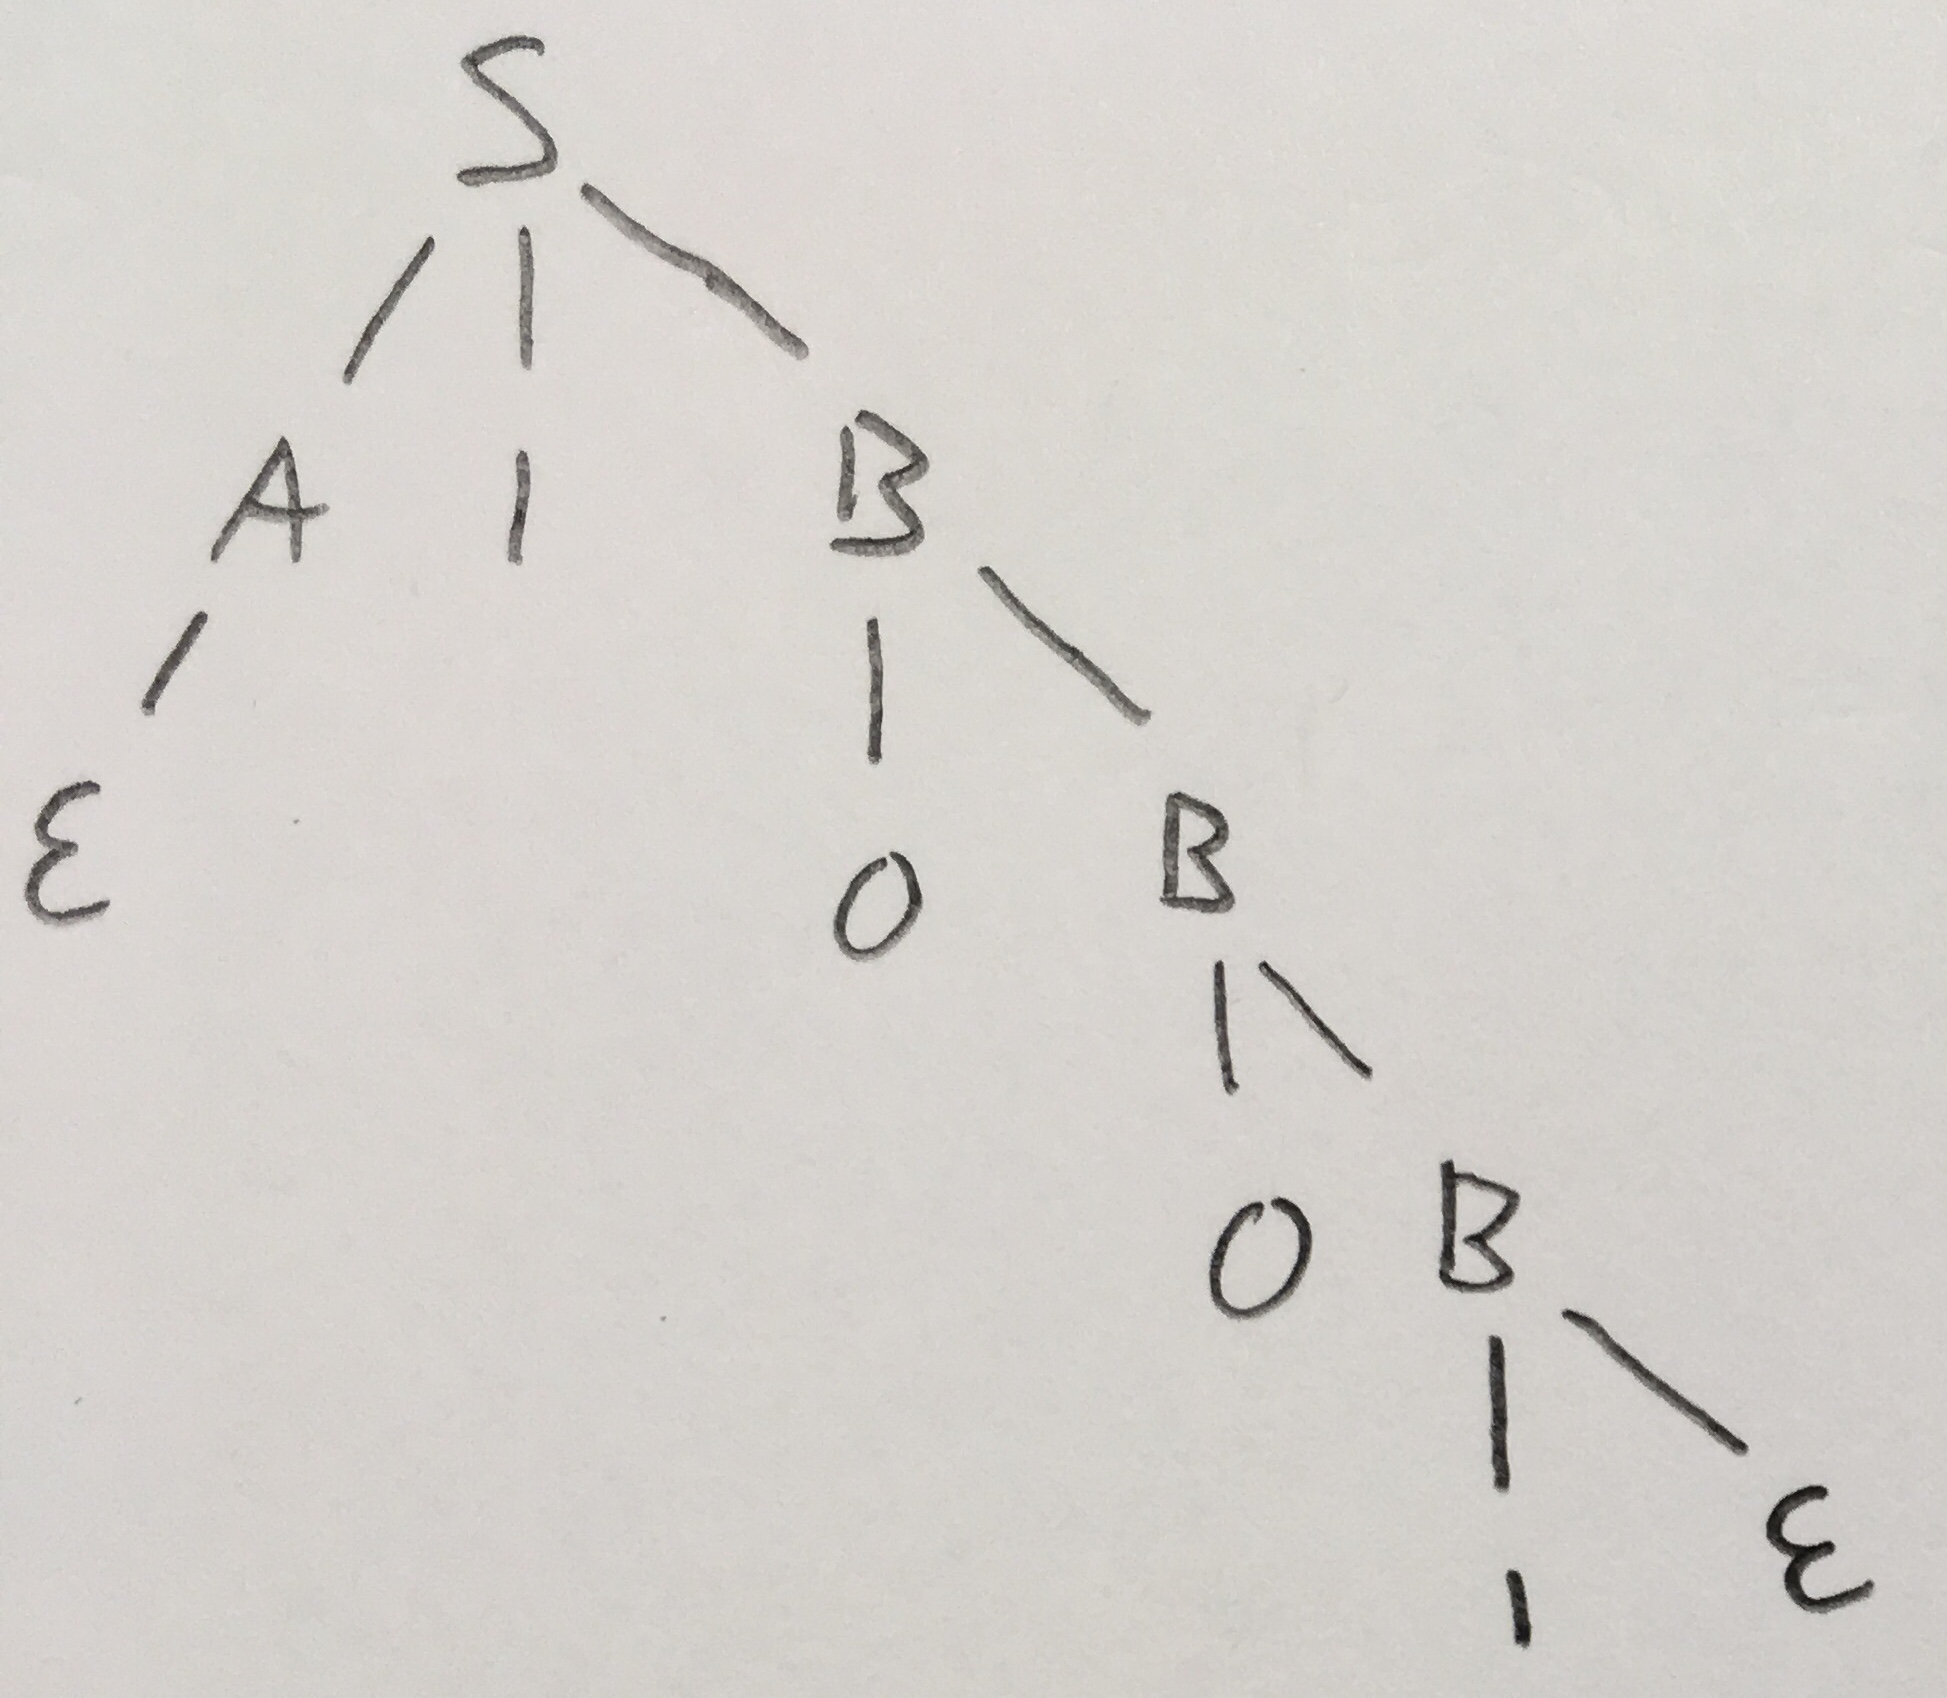 S
A 1 B
ε 0 B
0 B
1 ε